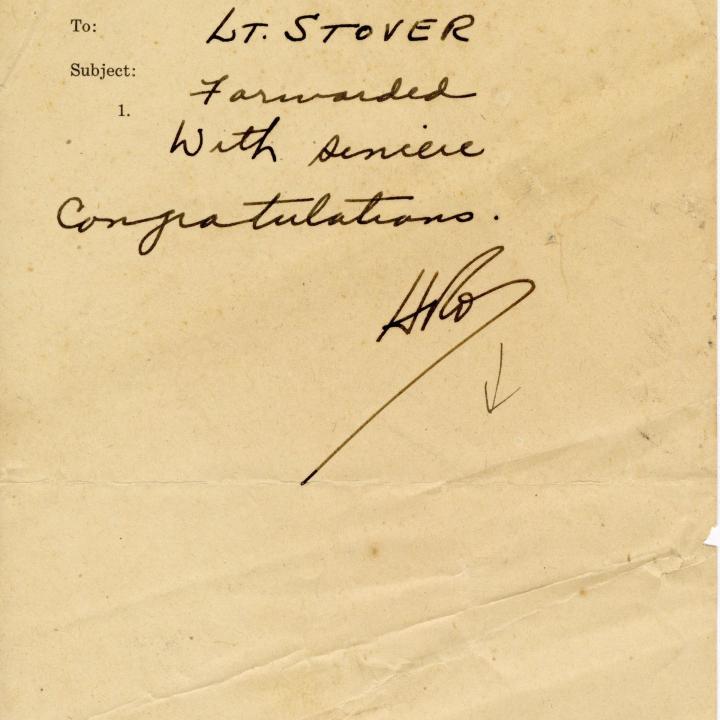 To: LT. STOVER
Subject:
Forwarded
1.
With sincere
Congratulations.